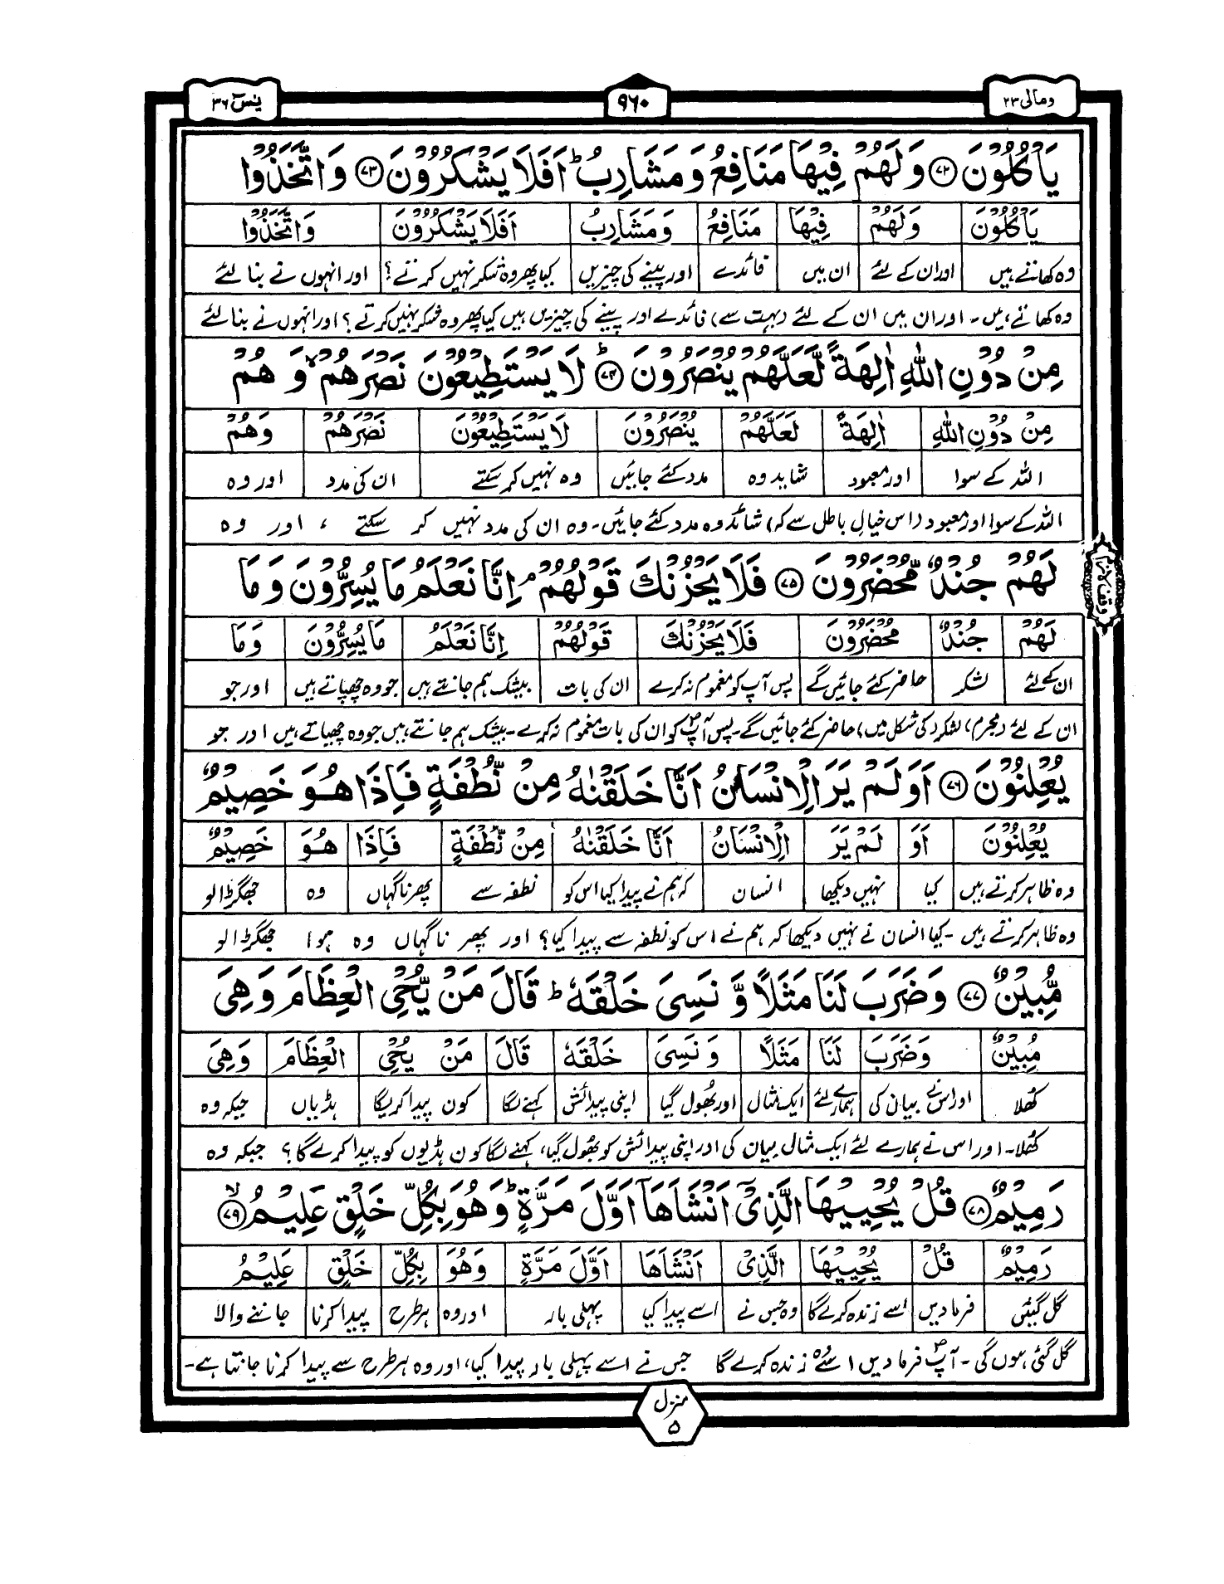 ومالی ۲۳
۹۶۰
یٰسٓ ۳۶
یَاْكُلُوْنَ ۝۷۲ وَلَهُمْ فِیْهَا مَنَافِعُ وَمَشَارِبُ ؕ اَفَلَا یَشْكُرُوْنَ ۝۷۳ وَاتَّخَذُوْا
یَاْكُلُوْنَ وَلَهُمْ فِیْهَا مَنَافِعُ وَمَشَارِبُ اَفَلَا یَشْكُرُوْنَ وَاتَّخَذُوْا
وہ کھاتے ہیں اور ان کے لئے ان میں فائدے اور پینے کی چیزیں کیا پھر وہ شکر نہیں کرتے؟ اور انہوں نے بنا لئے
وہ کھاتے ہیں۔ اور ان میں ان کے لئے (بہت سے) فائدے اور پینے کی چیزیں ہیں کیا پھر وہ شکر نہیں کرتے؟ اور انہوں نے بنا لئے
مِنْ دُوْنِ اللّٰهِ اٰلِهَةً لَّعَلَّهُمْ یُنْصَرُوْنَ ۝۷۴ؕ لَا یَسْتَطِیْعُوْنَ نَصْرَهُمْ ۙ وَهُمْ
مِنْ دُوْنِ اللّٰهِ اٰلِهَةً لَعَلَّهُمْ یُنْصَرُوْنَ لَا یَسْتَطِیْعُوْنَ نَصْرَهُمْ وَهُمْ
اللہ کے سوا اور معبود شاید وہ مدد کئے جائیں وہ نہیں کر سکتے ان کی مدد اور وہ
اللہ کے سوا اور معبود (اس خیالِ باطل سے کہ) شائد وہ مدد کئے جائیں۔ وہ ان کی مدد نہیں کر سکتے ، اور وہ
لَهُمْ جُنْدٌ مُّحْضَرُوْنَ ۝۷۵ فَلَا یَحْزُنْكَ قَوْلُهُمْ ۘ اِنَّا نَعْلَمُ مَا یُسِرُّوْنَ وَمَا
لَهُمْ جُنْدٌ مُحْضَرُوْنَ فَلَا یَحْزُنْكَ قَوْلُهُمْ اِنَّا نَعْلَمُ مَا یُسِرُّوْنَ وَمَا
ان کے لئے لشکر حاضر کئے جائیں گے پس آپ کو مغموم نہ کرے ان کی بات بیشک ہم جانتے ہیں جو وہ چھپاتے ہیں اور جو
ان کے لئے (مجرم) لشکر (کی شکل میں) حاضر کئے جائیں گے۔ پس آپؐ کو ان کی بات مغموم نہ کرے۔ بیشک ہم جانتے ہیں جو وہ چھپاتے ہیں اور جو
یُعْلِنُوْنَ ۝۷۶ اَوَلَمْ یَرَ الْاِنْسَانُ اَنَّا خَلَقْنٰهُ مِنْ نُّطْفَةٍ فَاِذَا هُوَ خَصِیْمٌ
یُعْلِنُوْنَ اَوَ لَمْ یَرَ الْاِنْسَانُ اَنَّا خَلَقْنٰهُ مِنْ نُّطْفَةٍ فَاِذَا هُوَ خَصِیْمٌ
وہ ظاہر کرتے ہیں کیا نہیں دیکھا انسان کہ ہم نے پیدا کیا اس کو نطفہ سے پھر ناگہاں وہ جھگڑالو
وہ ظاہر کرتے ہیں۔ کیا انسان نے نہیں دیکھا کہ ہم نے اس کو نطفہ سے پیدا کیا؟ اور پھر ناگہاں وہ ہوا جھگڑالو
مُّبِیْنٌ ۝۷۷ وَضَرَبَ لَنَا مَثَلًا وَّنَسِیَ خَلْقَهٗ ؕ قَالَ مَنْ یُّحْیِ الْعِظَامَ وَهِیَ
مُبِیْنٌ وَضَرَبَ لَنَا مَثَلًا وَنَسِیَ خَلْقَهٗ قَالَ مَنْ یُحْیِ الْعِظَامَ وَهِیَ
کھلا اور اس نے بیان کی ہمارے لئے ایک مثال اور بھول گیا اپنی پیدائش کہنے لگا کون پیدا کریگا ہڈیاں جبکہ وہ
کھلا۔ اور اس نے ہمارے لئے ایک مثال بیان کی اور اپنی پیدائش کو بھول گیا، کہنے لگا کون ہڈیوں کو پیدا کرے گا؟ جبکہ وہ
رَمِیْمٌ ۝۷۸ قُلْ یُحْیِیْهَا الَّذِیْۤ اَنْشَاَهَاۤ اَوَّلَ مَرَّةٍ ؕ وَهُوَ بِكُلِّ خَلْقٍ عَلِیْمُ ۝۷۹ۙ
رَمِیْمٌ قُلْ یُحْیِیْهَا الَّذِیْ اَنْشَاَهَا اَوَّلَ مَرَّةٍ وَهُوَ بِكُلِّ خَلْقٍ عَلِیْمُ
گل گئیں فرما دیں اسے زندہ کرے گا وہ جس نے اسے پیدا کیا پہلی بار اور وہ ہر طرح پیدا کرنا جاننے والا
گل گئی ہوں گی۔ آپؐ فرما دیں اسے وہ زندہ کرے گا جس نے اسے پہلی بار پیدا کیا، اور وہ ہر طرح سے پیدا کرنا جانتا ہے۔
منزل
۵